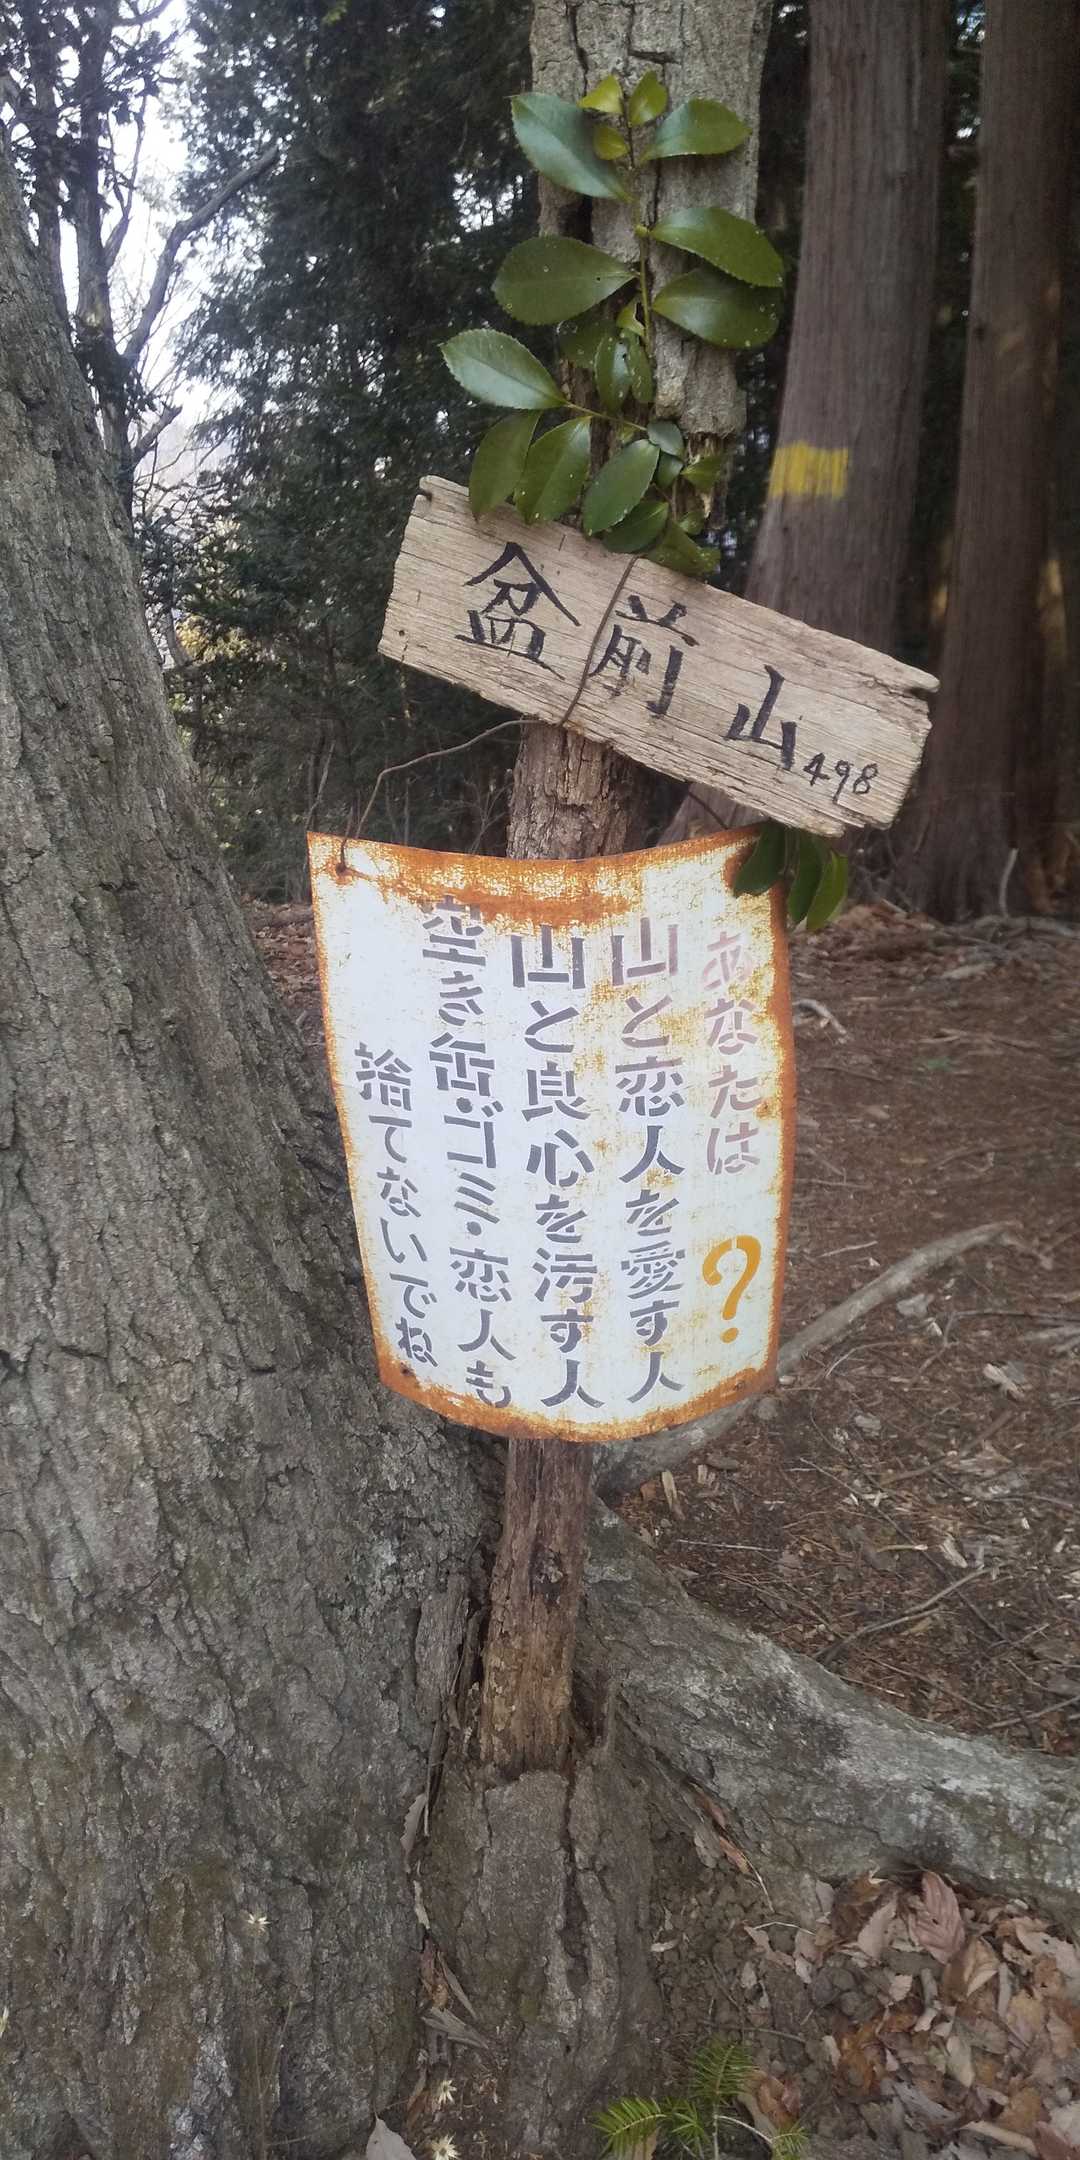 盆前山498
あなたは?
山と恋人を愛す人
山と良心を汚す人
空き缶・ゴミ・恋人も
捨てないでね